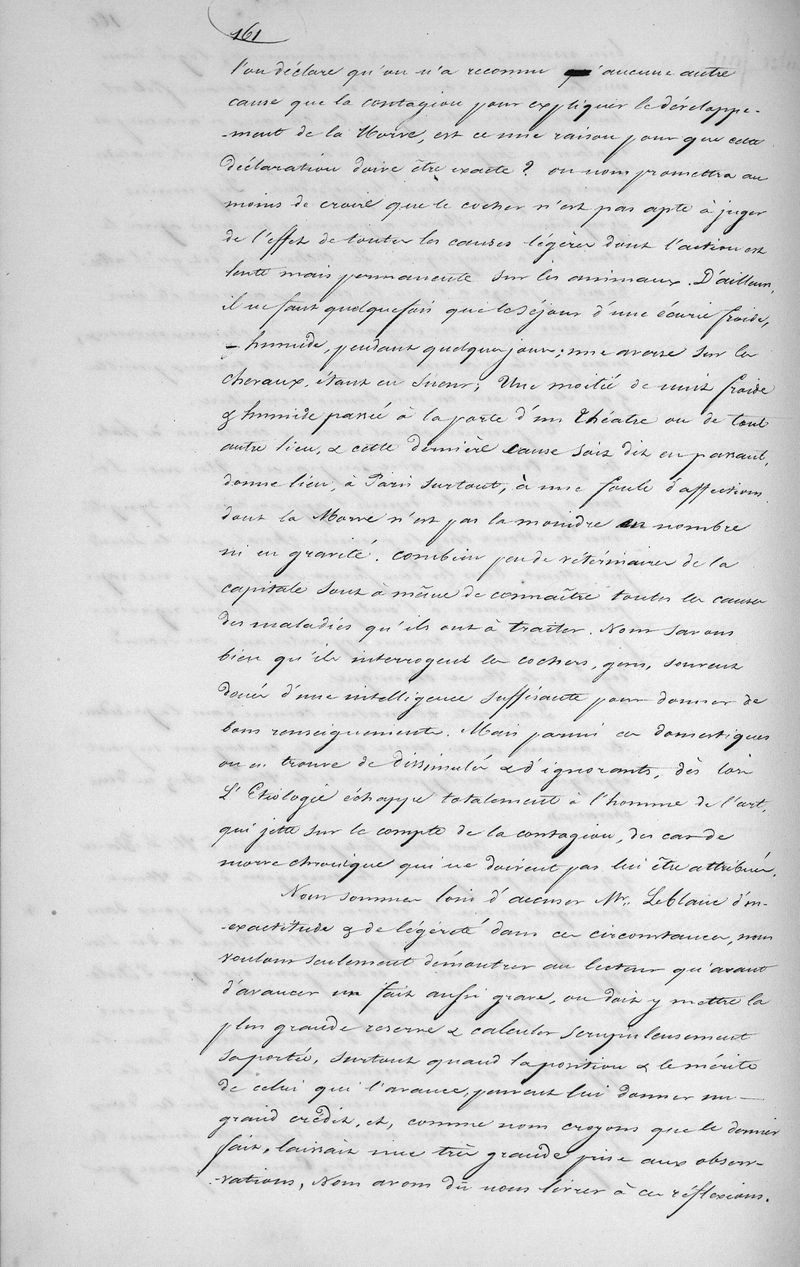 161
l'on déclare qu'on n'a reconnu qu'aucune autre
cause que la contagion pour expliquer le développe-
-ment de la Morve, est ce une raison pour que cette
déclaration doive être exacte? on nous promettra au
moins de croire que le cocher n'est pas apte à juger
de l'effet de toutes les causes légères dont l'action est
lente mais permanente sur les animaux. D'ailleurs,
il ne faut quelquefois que le séjour d'une écurie froide,
- humide, pendant quelques jours; une averse sur les
chevaux étant en sueur; Une moitié de nuit froide
& humide passée à la porte d'un Théatre ou de tout
autre lieu, & cette dernière cause soit dit en passant,
donne lieu, à Paris surtout, à une foule d'affections
dont la Morve n'est pas la moindre en nombre
ni en gravité. Combien peu de vétérinaires de la
capitale sont à même de connaître toutes les causes
des maladies qu'ils ont à traiter. Nous savons
bien qu'ils interrogent les cochers, gens, souvent
doués d'une intelligence suffisante pour donner de
bons renseignements. Mais parmi ces domestiques
on en trouve de dissimulés & d'ignorants, dès lors
L'Etiologie échappe totalement à l'homme de l'art,
qui jette sur le compte de la contagion, des cas de
morve chronique qui ne doivent pas lui être attribués.
Nous sommes loin d'accuser Mr. Leblanc d'in-
-exactitude & de légéreté dans ces circonstances, nous
voulons seulement démontrer au lecteur qu'avant
d'avancer un fait aussi grave, on doit y mettre la
plus grande reserve & calculer scrupuleusement
sa portée, surtout quand la position & le mérite
de celui qui l'avance, peuvent lui donner un -
grand crédit, et, comme nous croyons que le dernier
fait, laissait une très grande prise aux obser-
-vations, Nous avons dû nous livrer à ces réflexions.